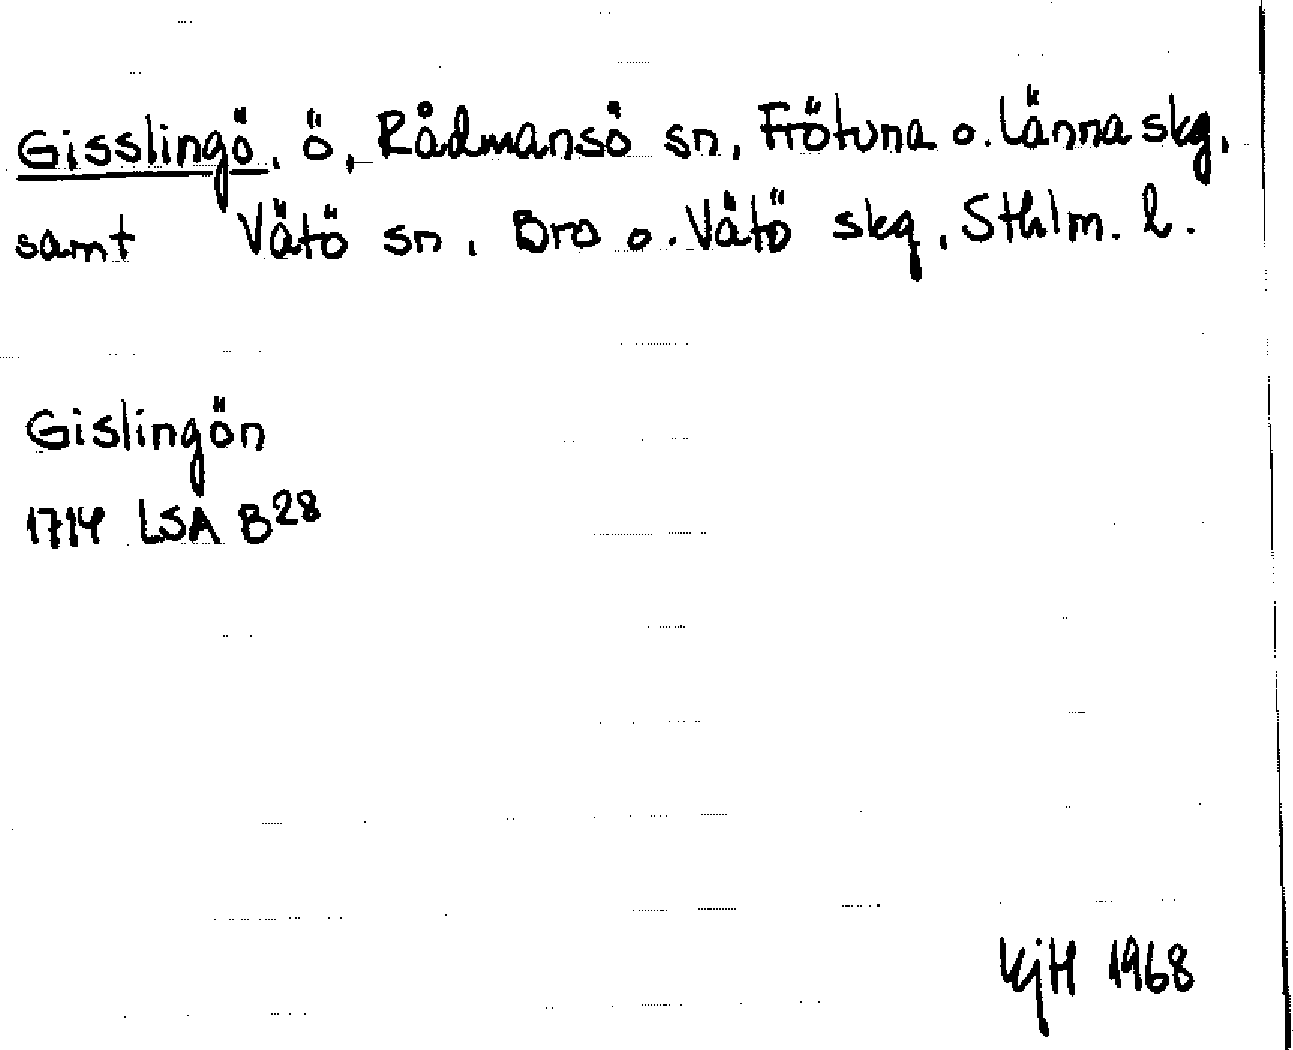 Gisslingö, ö, Rådmansö sn, Frötuna o. Länna skg,
samt Vätö sn, Bro o. Vätö skg, Sthlm. l.
Gislingön
1714 LSA B28
KjH 1968